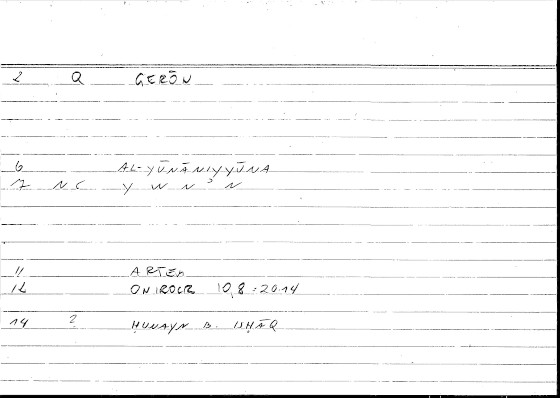 2 Q GERŌN
6 AL-YŪNĀNIYYŪNA
7 NC Y W N ʾ N
11 ARTEM
12 ONIROCR 10,8 : 20.14
14 ? ḤUNAYN B. ISḤĀQ